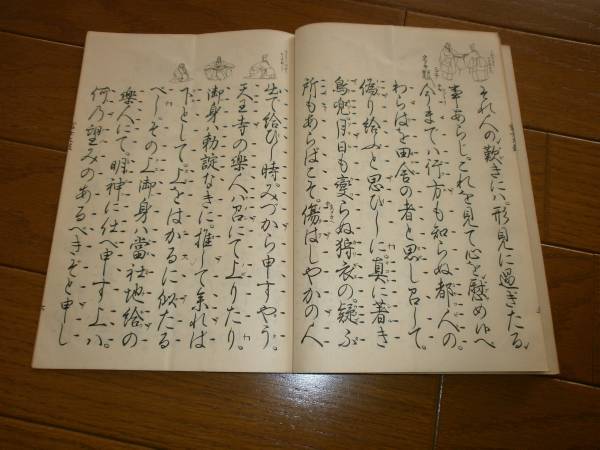 それ人の歎きにハ。形見に過ぎたる
事あらじ。これを見て心を慰め候へ
今までハ行方も知らぬ都人の。
わらはを田舎の者と思し召して。
偽り給ふと思ひしに。真に著き
鳥兜。月日も變らぬ狩衣の。疑ふ
所もあらばこそ。傷はしやかの人
出で給ひし時。みづから申すやう。
天王寺の樂人ハ召にて上りたり。
御身ハ勅諚なきに。推して參れば
下として。上をはかるに似たる
べし。その上御身ハ當社地給の
樂人にて。明神に仕へ申す上ハ。
何乃望みのあるべきぞと申し